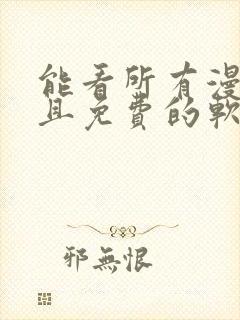 能看所有漫
且免費的軟
邪無恨